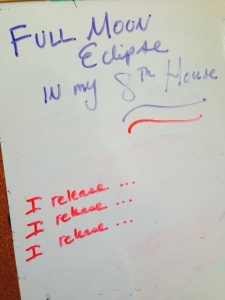 FULL MOON
Eclipse
IN my 8TH House
I release ...
I release ...
I release ...